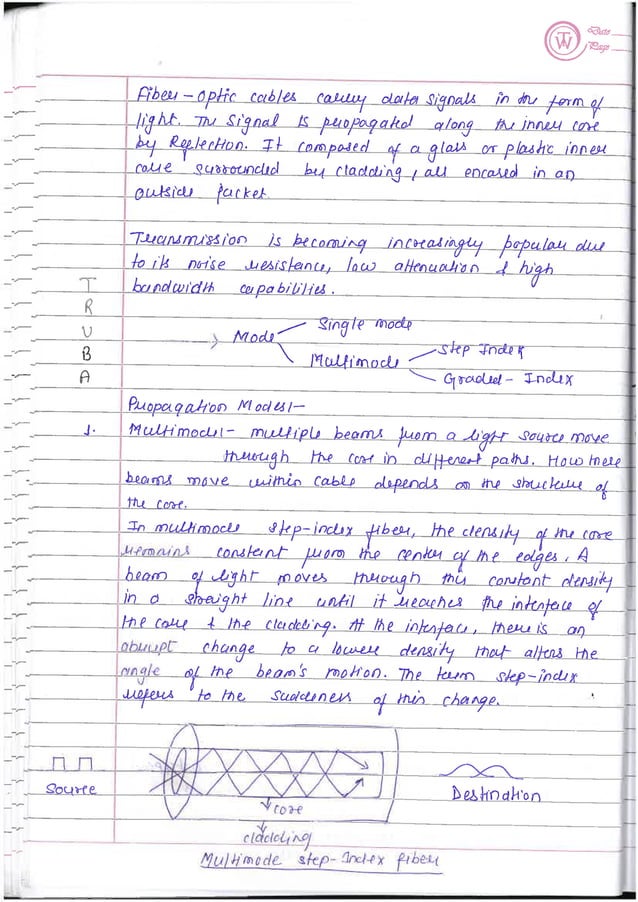 TW
Date
Page
Fiber-Optic cables carry data signals in the form of
light. The Signal is propagated along the inner core
by Reflection. It composed of a glass or plastic inner
core surrounded by cladding, all encased in an
outside jacket.
Transmission is becoming increasingly popular due
to its noise resistance, low attenuation & high
bandwidth capabilities.
T
R
U
B
A
Mode
Single mode
Multimode
Step Index
Graded-Index
Propagation Modes:-
1. Multimode:- multiple beams from a light source move
through the core in different paths. How these
beams move within cable depends on the structure of
the core.
In multimode step-index fiber, the density of the core
remains constant from the center of the edges. A
beam of light moves through this constant density
in a straight line until it reaches the interface of
the core & the cladding. At the interface, there is an
abrupt change to a lower density that alters the
angle of the beam's motion. The term step-index
refers to the suddeness of this change.
Source
core
cladding
Destination
Multimode step-Index fiber